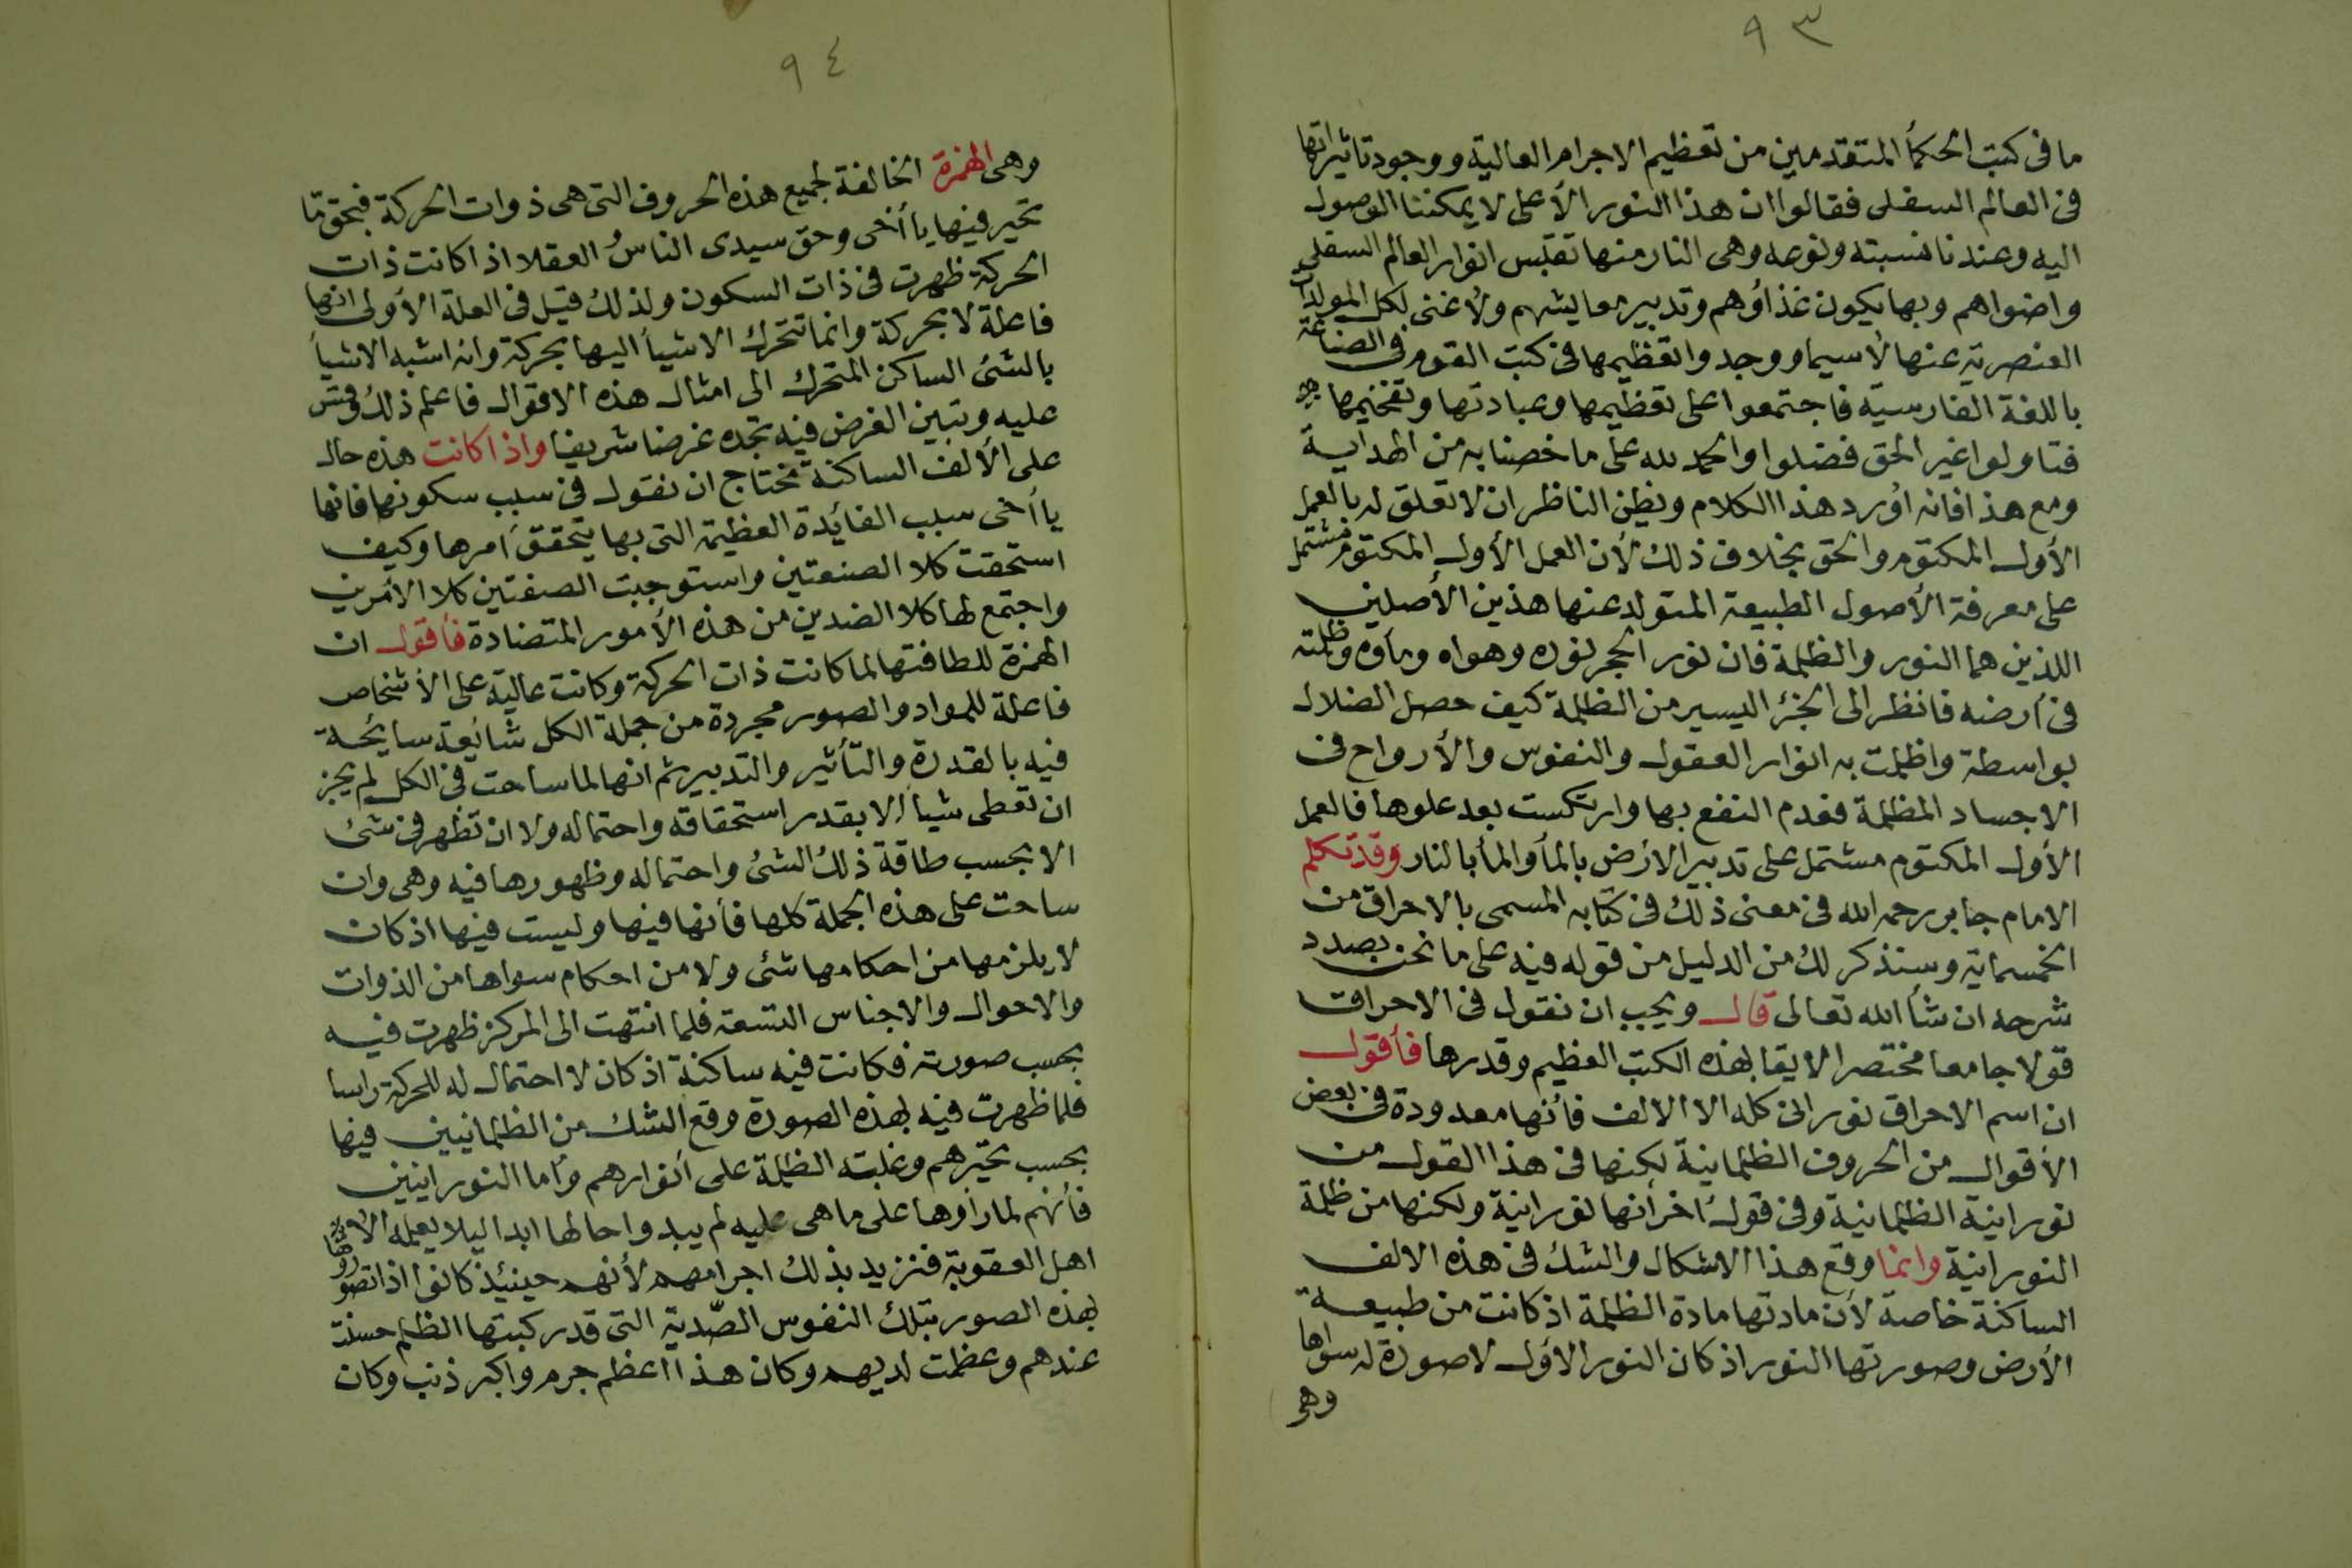 ٩٣
ما فى كتب الحكمأ المتقدمين من تعظيم الاجرام العالية ووجود تاثيراتها
فى العالم السفلى فقالوا ان هذا النور الأعلى لا يمكننا الوصول
اليه وعندنا نسبته ونوعه وهى النار منها تقتبس انوار العالم السفلى
واضواهم وبها يكون غذاؤهم وتدبير معايشهم ولا غنى لكل المولدات
العنصرية عنها لاسيما ووجدوا تعظيمها فى كتب القوم فى الصناعة
باللغة الفارسية فاجتمعوا على تعظيمها وعبادتها وتفخيمها
فتاولوا غير الحق فضلوا والحمد لله على ما خصنا به من الهداية
ومع هذا فانه اورد هذا الكلام ويظن الناظر ان لا تعلق له بالعمل
الأول المكتوم والحق بخلاف ذلك لأن العمل الأول المكتوم مشتمل
على معرفة الأصول الطبيعة المتولد عنها هذين الأصلين
اللذين هما النور والظلمة فان نور الحجر نوره وهواه وماؤه وظلمته
فى أرضه فانظر الى الجزء اليسير من الظلمة كيف حصل الضلال
بواسطة واظلمت به انوار العقول والنفوس والأرواح فى
الاجساد المظلمة فعدم النفع بها وارتكست بعد علوها فالعمل
الأول المكتوم مشتمل على تدبير الارض بالمأ والمأ بالنار وقد تكلم
الامام جابر رحمه الله فى معنى ذلك فى كتابه المسمى بالاحراق من
الخمسماية وسنذكر لك من الدليل من قوله فيه على ما نحن بصدد
شرحه ان شأ الله تعالى قال ويجب ان نقول فى الاحراق
قولا جامعا مختصرا لايقا بهذه الكتب العظيم وقدرها فأقول
ان اسم الاحراق نورانى كله الا الالف فأنها معدودة فى بعض
الأقوال من الحروف الظلمانية لكنها فى هذا القول من
نورانية الظلمانية وفى قول اخر أنها نورانية ولكنها من ظلمة
النورانية وانما وقع هذا الاشكال والشك فى هذه الالف
الساكنة خاصة لأن مادتها مادة الظلمة اذ كانت من طبيعة
الأرض وصورتها النور اذ كان النور الأول لا صورة له سواها
وهى
٩٤
وهى الهمزة الخالفة لجميع هذه الحروف التى هى ذوات الحركة فبحق ما
تحير فيها يا أخى وحق سيدى الناس العقلا اذا كانت ذات
الحركة ظهرت فى ذات السكون ولذلك قيل فى العلة الأولى انها
فاعلة لا بحركة وانما تتحرك الاشيأ اليها بحركة وانه اشبه الاشيأ
بالشئ الساكن المتحرك الى امثال هذه الاقوال فاعلم ذلك وقس
عليه وتبين الغرض فيه تجده غرضا شريفا واذا كانت هذه حال
على الألف الساكنة نحتاج ان نقول فى سبب سكونها فانها
يا أخى سبب الفائدة العظيمة التى بها يتحقق أمرها وكيف
استحقت كلا الصنعتين واستوجبت الصفتين كلا الأمرين
واجتمع لها كلا الضدين من هذه الأمور المتضادة فأقول ان
الهمزة للطافتها لما كانت ذات الحركة وكانت عالية على الأشخاص
فاعلة للمواد والصور مجردة من جملة الكل شائعة سايحة
فيه بالقدرة والتأثير والتدبير ثم انها لما ساحت فى الكل لم يجز
ان تعطى شيأ الا بقدر استحقاقه واحتماله ولا ان تظهر فى شئ
الا بحسب طاقة ذلك الشئ واحتماله وظهورها فيه وهى وان
ساحت على هذه الجملة كلها فأنها فيها وليست فيها اذ كان
لا يلزمها من احكامها شئ ولا من احكام سواها من الذوات
والاحوال والاجناس التسعة فلما انتهت الى المركز ظهرت فيه
بحسب صورته فكانت فيه ساكنة اذ كان لا احتمال له للحركة راسا
فلما ظهرت فيه بهذه الصورة وقع الشك من الظلمانيين فيها
بحسب تحيّرهم وغلبة الظلمة على أنوارهم وأما النورانيين
فأنهم لما رأوها على ما هى عليه لم يبدوا حالها ابدا ليلا يعلمه
اهل العقوبة فتزيد بذلك اجرامهم لأنهم حينيئذ كانوا اذا تصوروها
بهذه الصور بتلك النفوس الصّدية التى قد ركبتها الظلم حسنت
عندهم وعظمت لديهم وكان هذا اعظم جرم واكبر ذنب وكان